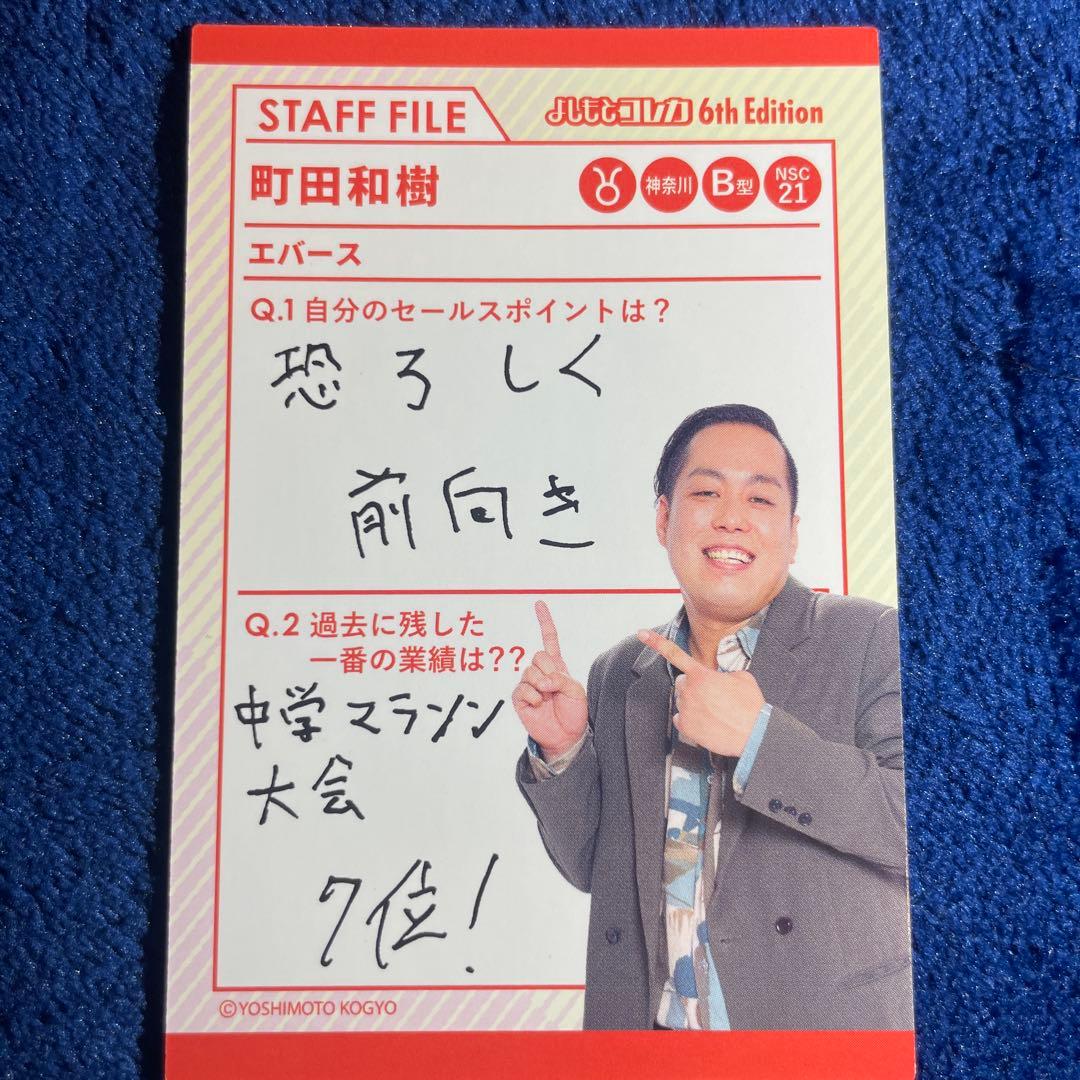 STAFF FILE
よしもとコレカ 6th Edition
町田和樹
神奈川
B型
NSC
21
エバース
Q.1 自分のセールスポイントは？
恐ろしく
前向き
Q.2 過去に残した
一番の業績は??
中学マラソン
大会
7位!
©YOSHIMOTO KOGYO